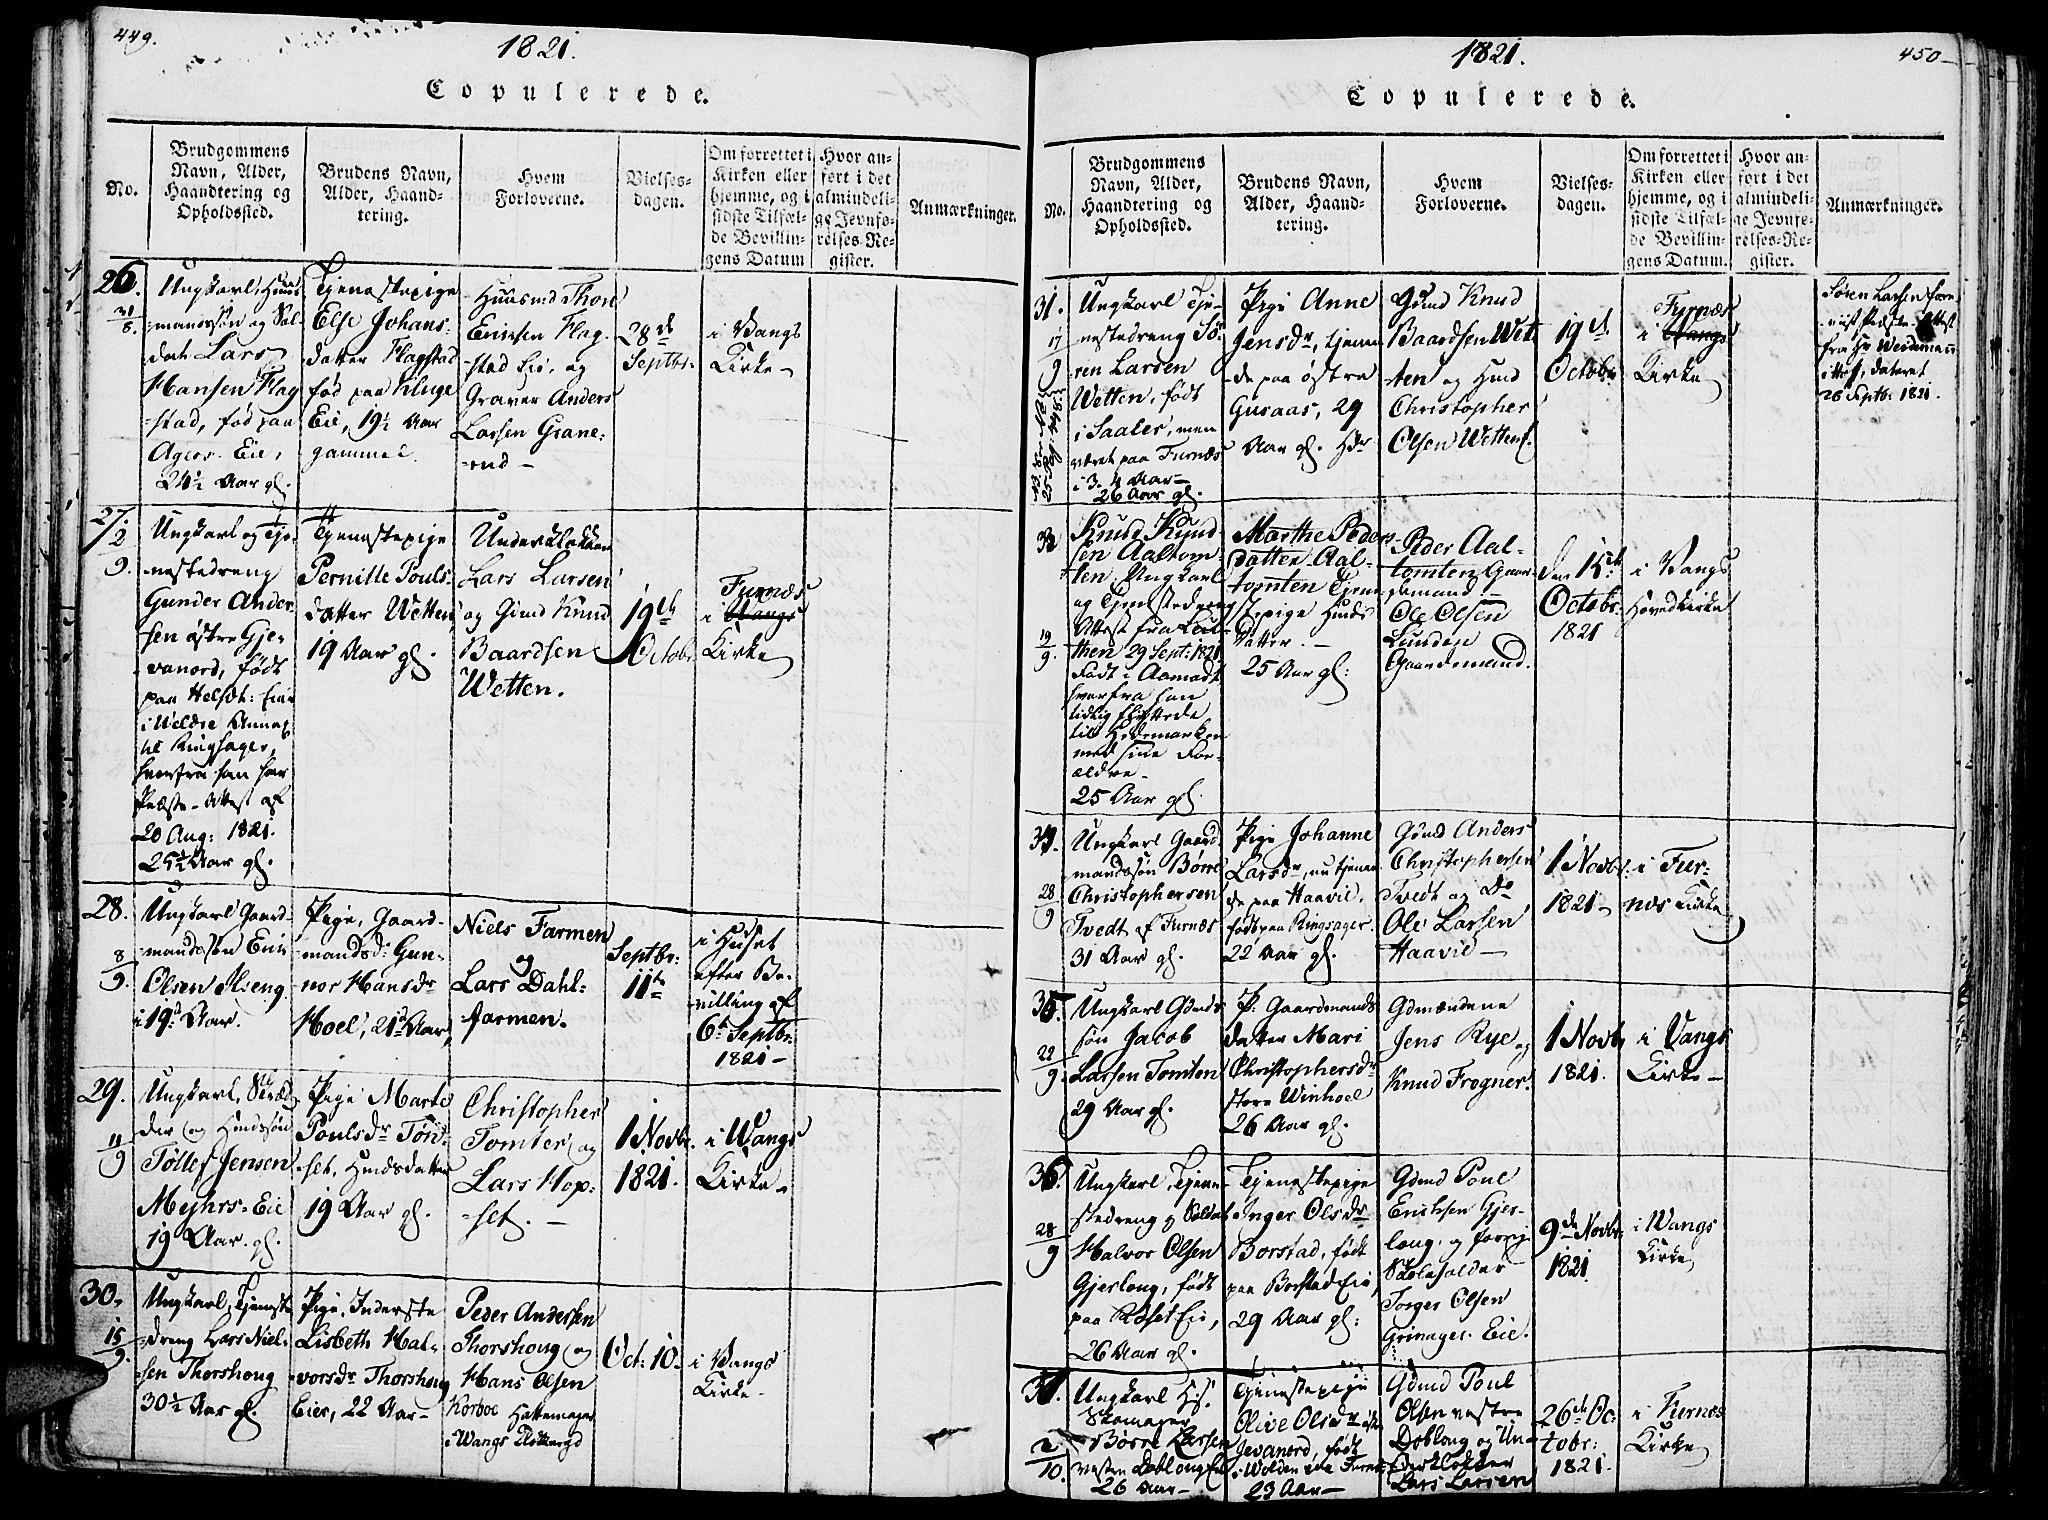 449.
1821.
Copulerede.
No.
Brudgommens Navn, Alder, Haandtering og Opholdssted.
Brudens Navn, Alder, Haandtering.
Hvem Forloverne.
Vielsesdagen.
Om forrettet i Kirken eller hjemme, og i sidste Tilfælde Bevillingens Datum
Hvor anført i det almindelige Jevnførelses-Register.
Anmærkninger.
26.
31/8.
Ungkarl, Huus
mandssøn og Sol
dat Lars
Hansen Flag
stad, fød paa
Agers Eie,
24½ Aar gl.
Tjenestepige
Else Johans
datter Flagstad
fød paa Kluge
Eie, 19½ Aar
gammel
Huusmd Thor
Erichsen Flag
stad Eie, og
Graver Anders
Larsen Grane
rud
28de
Septbr.
i Vangs
Kirke
27.
2/9.
Ungkarl og Tje
nestedreng
Gunder Ander
sen østre Gje
vanord, født
paa Helset: Eie
i Weldre Annex
til Ringsager,
hvorfra han har
Præste-Attest af
20 Aug: 1821.
25½ Aar gl.
Tjenestepige
Pernille Pouls
datter Wetten
19 Aar gl.
Underklokker
Lars Larsen
og Gmd Knud
Baardsen
Wetten.
19de
Octobr.
Furnæs
i Vangs
Kirke
28.
8/9.
Ungkarl Gaard
mandssøn Erik
Olsen Ilseng
i 19de Aar.
Pige, Gaard
mandsd: Gun
nor Hansdr
Hoel, 21de Aar
Niels Farmen
og
Lars Dahl
farmen.
Septbr:
11te
i Huset
efter Be
villing af
6te Septbr.
1821
29.
11/9
Ungkarl, Skræd
der og Hmdssøn
Tollef Jensen
Mejhrs Eie
19 Aar gl.
Pige Marte
Poulsdr Tøn
set, Hmdsdatter
19 Aar gl.
Christopher
Tomter og
Lars Hop
set.
1 Novbr.
1821.
i Wangs
Kirke
30.
15/9.
Ungkarl, Tjeneste
dreng Lars Niel
sen Thorshoug
30½ Aar gl.
Pige, Inderste
Lisbeth Hal
vorsdr Thorshoug
Eier, 22 Aar
Peder Andersen
Thorshoug og
Hans Olsen
Korboe Hattemager
i Wangs
Oct: 10.
i Vangs
Kirke
450
1821.
Copulerede.
No.
Brudgommens Navn, Alder, Haandtering og Opholdssted.
Brudens Navn, Alder, Haandtering.
Hvem Forloverne.
Vielsesdagen.
Om forrettet i Kirken eller hjemme, og i sidste Tilfælde Bevillingens Datum.
Hvor anført i det almindelige Jevnførelses-Register.
Anmærkninger.
31.
17/9
Ungkarl Tje
nestedreng Sø
ren Larsen
Wetten, født
i Saaler, men
været paa Furnæs
i 3. 4 Aar
26 Aar gl.
Pige Anne
Jensdr, tjenen
de paa østre
Gusaas, 29
Aar gl.
Gmd Knud
Baardsen Wet
ten og Hmd
Christopher
Olsen Wetten
19de
Octobr
Furnæs
i Vangs
Kirke
Søren Larsen frem
viist Præste-Attest
fra Hr Weidemann
dateret
28 Septbr: 1821.
32
19/9.
Knud Knud
sen Aaltom
ten Ungkarl
og Tjenestedreng
Attest fra
29 Sept: 1821
Født i Aamodt
hvorfra han
tidlig flyttede
til Hedemarken
med sine For
ældre
25 Aar gl.
Marthe Peders
datter Aal
tomten Tjene
stepige Hmds
datter.
25 Aar gl:
Peder Aal
tomten Gaar
demand
Ole Olsen
Gaardemand.
den 15de
Octobr:
1821
i Vangs
Hovedkirke
28/9
Ungkarl Gaard
mandssøn Børre
Christophersen
Tvedt af Furnæs
31 Aar gl.
Pige Johanne
Larsdr, nu tjenen
de paa Haavie,
født paa Ringsager
22 Aar gl.
Gmd Anders
Christophersen
Tvedt og Do
Ole Larsen
Haavie
1 Novbr:
1821
i Fur
næs Kirke
22/9
Ungkarl Gmds
søn Jacob
Larsen Tomten
29 Aar gl.
P: Gaardmands
datter Mari
Christophersdr
store Winhoel
26 Aar gl.
Gdmændene
Jens Rye og
Knud Frogner.
1 Novbr
1821.
i Vangs
Kirke
36.
28/9
Ungkarl, Tjene
stedreng og Soldat
Halvor Olsen
Gjeslong, født
paa Eie,
26 Aar gl.
Tjenestepige
Inger Olsdr
Borstad, født
paa Borstad Eie,
29 Aar gl:
Gdmd Poul
Erichsen Gjes
long, og forrige
Skoleholder
Torger Olsen
Grimager Eie.
9de Novbr
1821.
i Wangs
Kirke
2/10.
Ungkarl
Skomager
Børre Larsen
vesten Doblong Eie
26 Aar
Tjenestepige
Olive Olsdr
Jevanord, født
23 Aar
Gdmd Poul
Olsen vestre
Doblong og Un
derklokker
Lars Larsen
26de Oc
tobr:
1821.
i Furnæs
Kirke